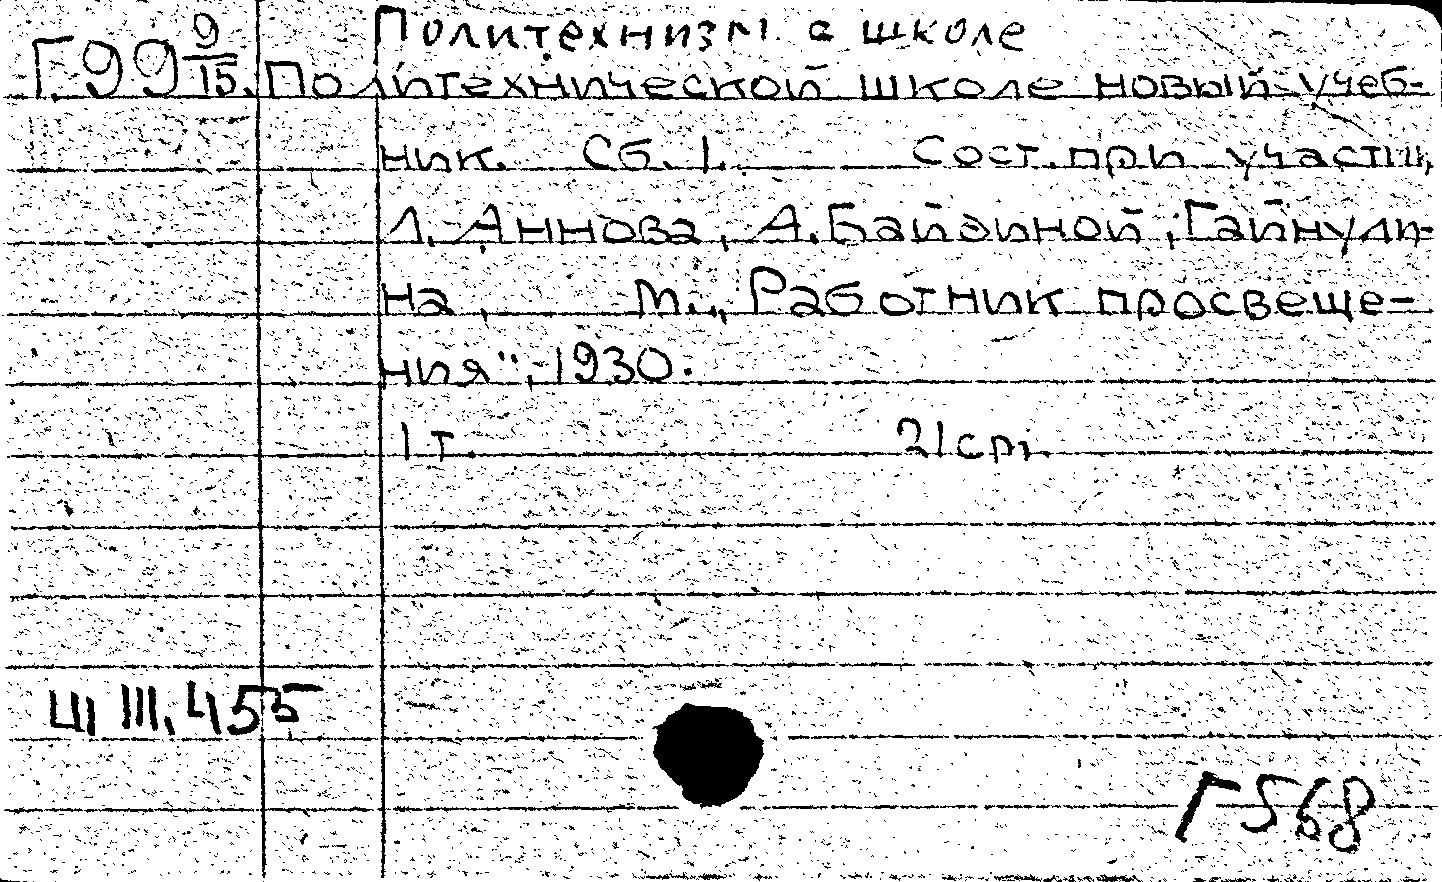 Политехнизм в школе
Г 99 9/15. Политехнической школе новый учеб-
ник. Сб. 1. Сост. при участии,
Л. Аннова, А. Байдиной, Гайнули-
на, М., Работник просвеще-
ния", 1930.
1 т. 21 стр.
Ш III, 455
Г 568